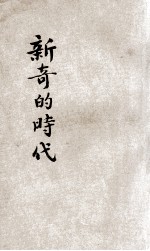 新奇的時代